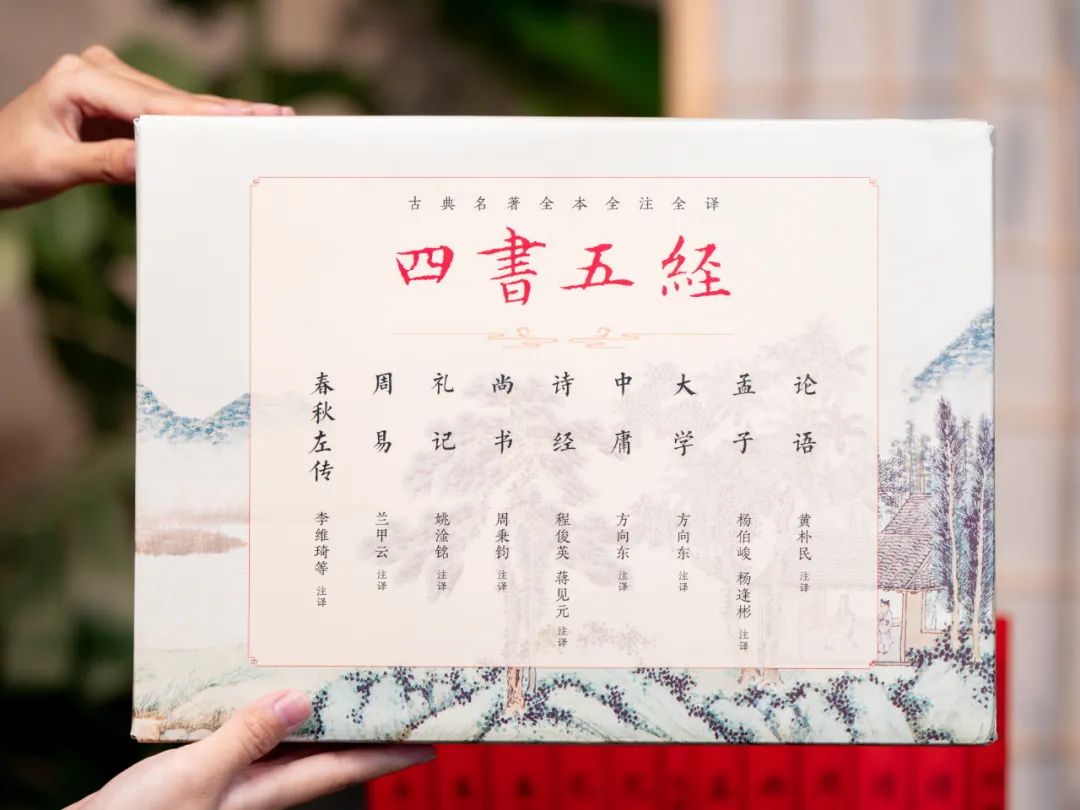 古典名著全本全注全译
四書五経
论语
黄朴民 注译
孟子
杨伯峻 杨逢彬 注译
大学
方向东 注译
中庸
方向东 注译
诗经
程俊英 蒋见元 注译
尚书
周秉钧 注译
礼记
姚淦铭 注译
周易
兰甲云 注译
春秋左传
李维琦等 注译